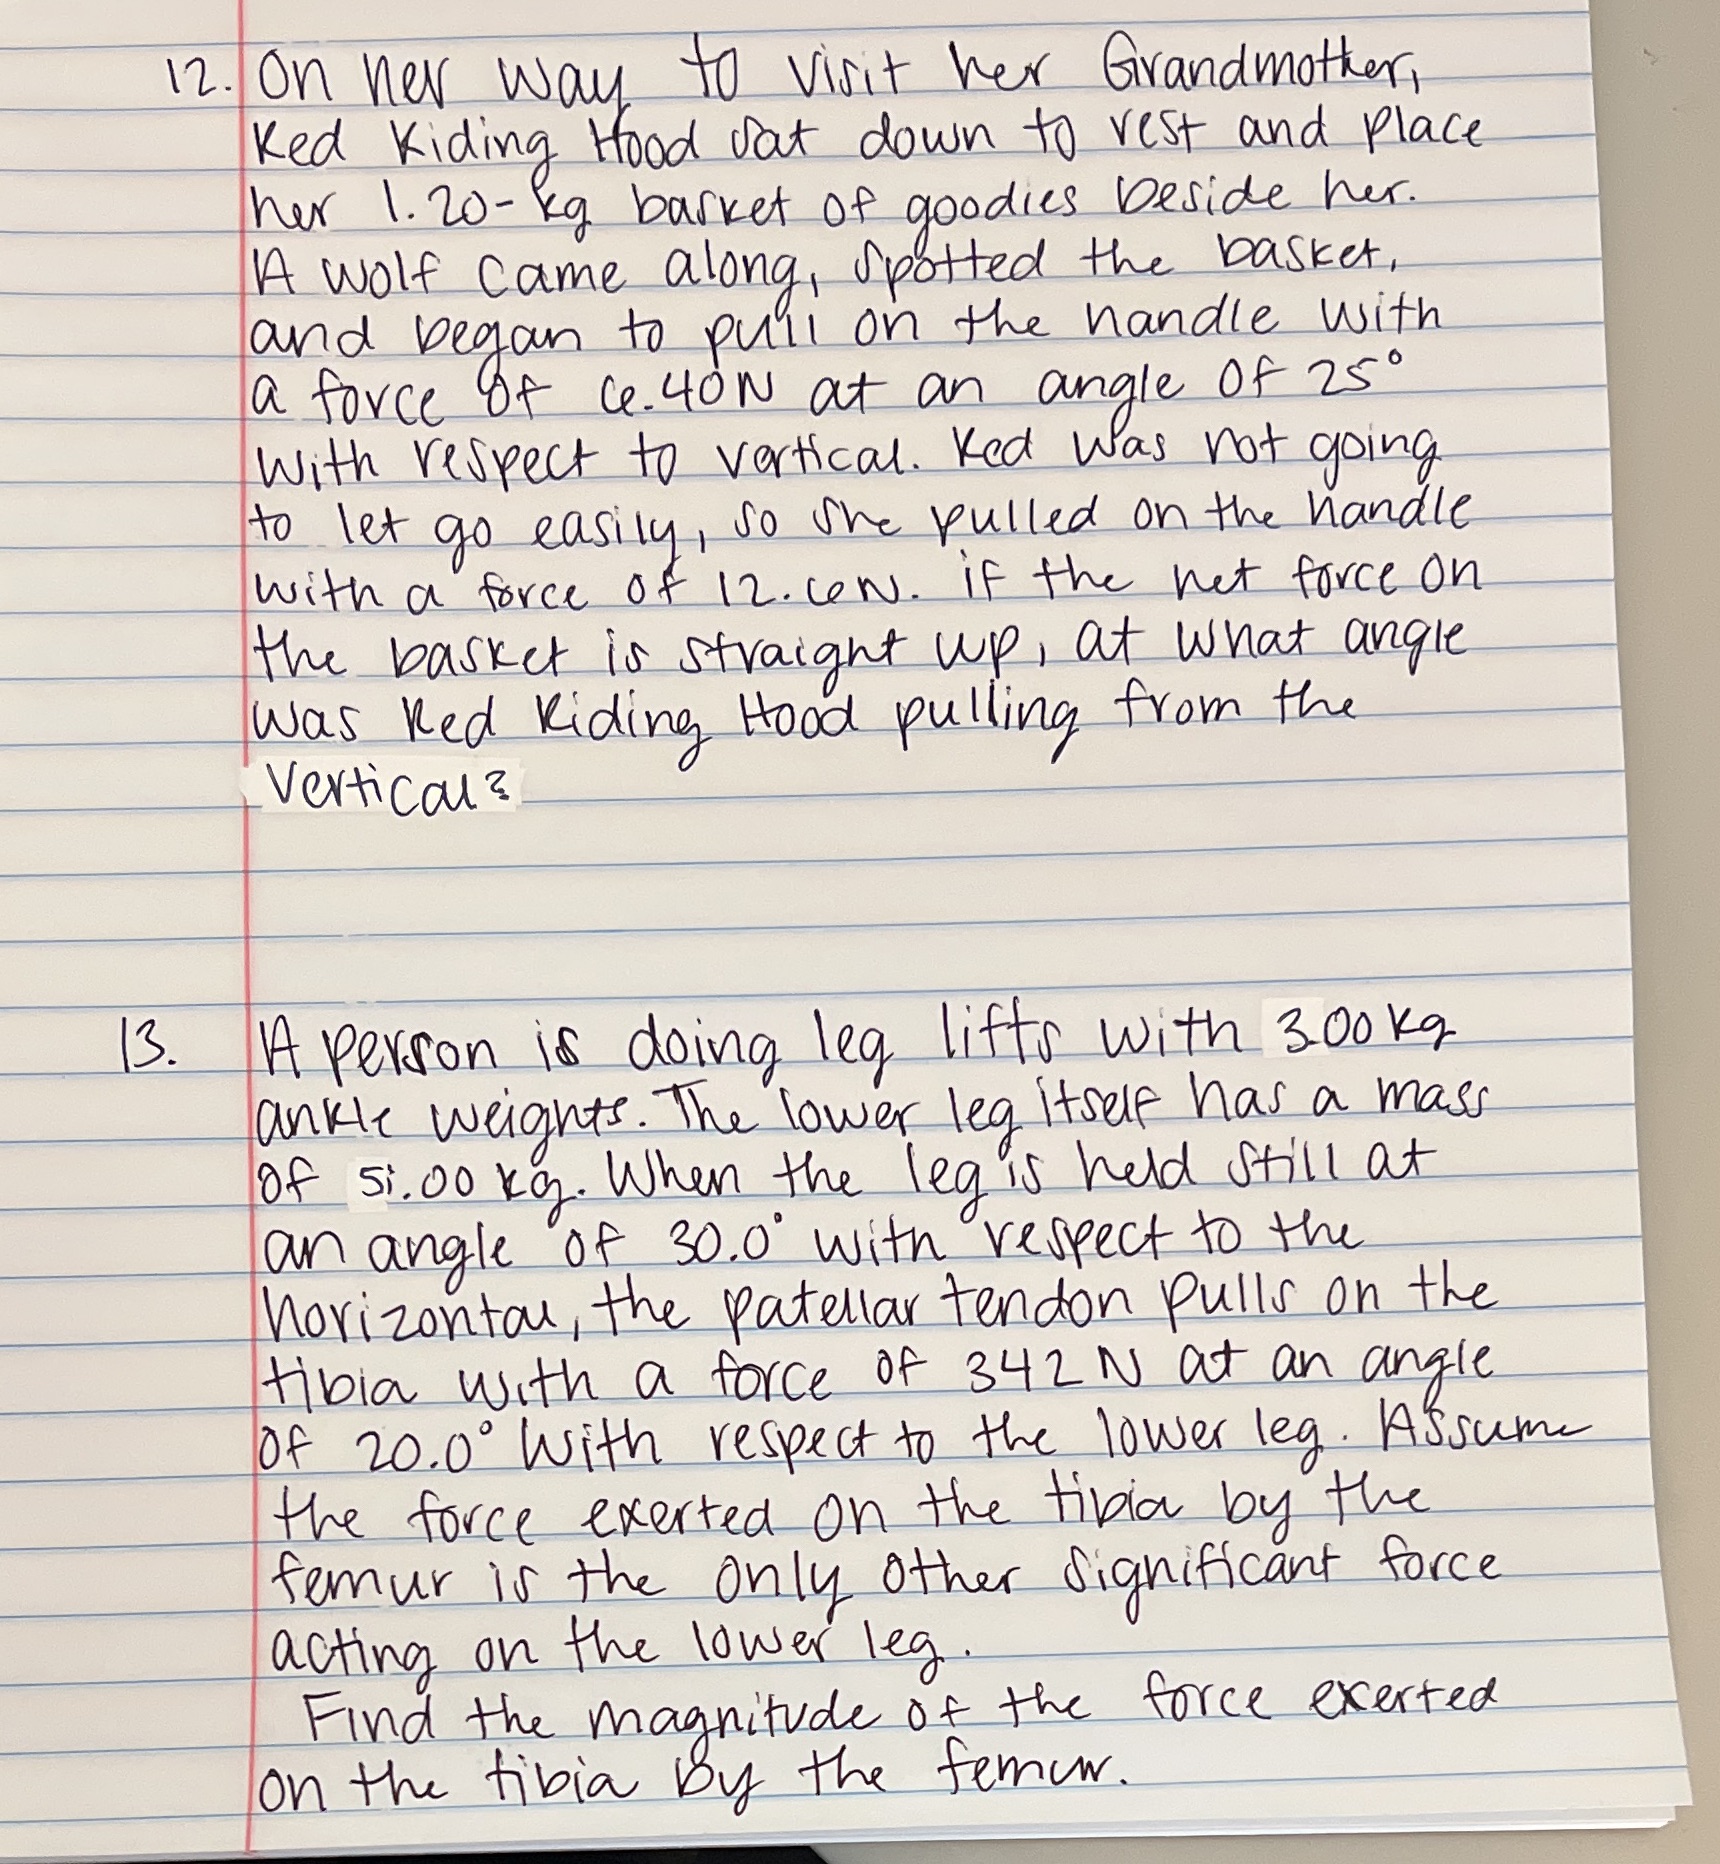 12. On her way to visit her Grandmother,
Red Riding Hood sat down to rest and place
her 1.20-kg basket of goodies beside her.
A wolf came along, spotted the basket,
and began to pull on the handle with
a force of 6.40N at an angle of 25°
with respect to vertical. Red was not going
to let go easily, so she pulled on the handle
with a force of 12.6N. if the net force on
the basket is straight up, at what angle
was Red Riding Hood pulling from the
vertical?
13. A person is doing leg lifts with 3.00kg
ankle weights. The lower leg itself has a mass
of 5.00 kg. When the leg is held still at
an angle of 30.0° with respect to the
horizontal, the patellar tendon pulls on the
tibia with a force of 342 N at an angle
of 20.0° with respect to the lower leg. Assume
the force exerted on the tibia by the
femur is the only other significant force
acting on the lower leg.
Find the magnitude of the force exerted
on the tibia by the femur.